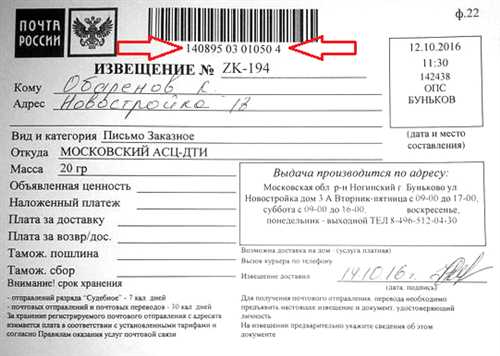 ПОЧТА
РОССИИ
ф.22
140895 03 01050 4
12.10.2016
11:30
142438
ОПС
БУНЬКОВ
(дата и место
составления)
ИЗВЕЩЕНИЕ № ZK-194
Кому
Адрес Новостройка
Вид и категория Письмо Заказное
Откуда МОСКОВСКИЙ АСЦ-ДТИ
Масса 20 гр
Объявленная ценность
Наложенный платеж
Плата за доставку
Плата за возвр/дос.
Тамож. пошлина
Тамож. сбор
Внимание! срок хранения
- отправлений разряда "Судебное" - 7 кал. дней
- почтовых отправлений и почтовых переводов - 30 кал. дней
За хранение регистрируемого почтового отправления с адресата
взимается плата в соответствии с установленными тарифами и
согласно Правилам оказания услуг почтовой связи
Выдача производится по адресу:
Московская обл р-н Ногинский г Буньково ул
Новостройка дом 3 А Вторник-пятница с 09-00 до 17-00,
суббота с 09-00 до 16-00, воскресенье,
понедельник - выходной ТЕЛ 8-496-512-04-30
Возможна доставка на дом (услуга платная)
Вызов курьера по телефону
Извещение доставил 14.10.16г.
(дата, подпись)
Для получения почтового отправления, перевода необходимо
предъявить настоящее извещение и документ, удостоверяющий
личность
На извещении предварительно укажите сведения об этом
документе